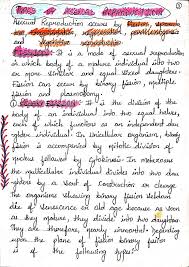 TYPES OF ASEXUAL REPRODUCTION
Asexual Reproduction occurs by
is a mode of asexual reproduction
in which body of a mature individual into two
or more similar and equal sized daughters.
Fission can occur by binary fission, multiple
fission or plasmotomy.
It is the division of the
body of an individual into two equal halves
each of which functions as an independent dau
ghter individual. In Unicellular organism, body
fission is accompanied by mitotic division of
nucleus followed by cytokinesis. In metazoans
the multicellular individual divides into two dau
ghters by a sort of constriction or cleavage
The organisms showing binary fission seldom
die of senescence or old age because as soon
as they mature, they divide into two daughters
They are therefore, nearly immortal. Depending
upon the plane of fission binary fission
is of the following types